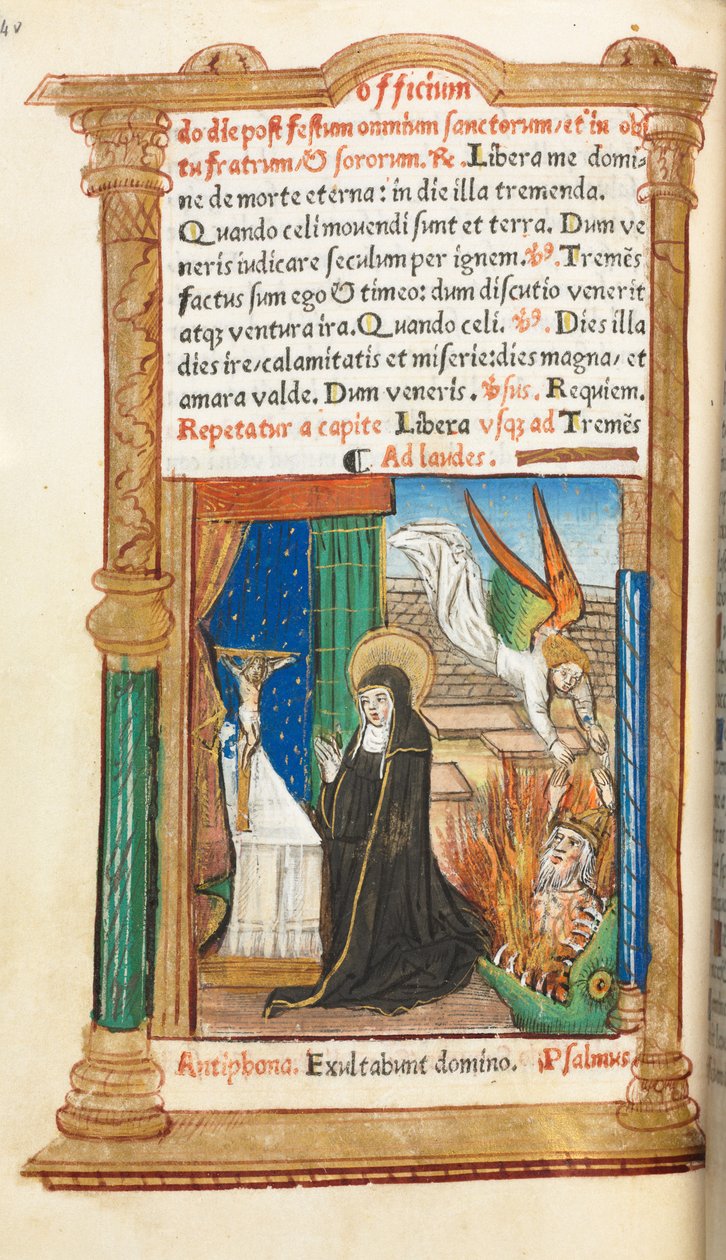 4v
officium
do die post festum omnium sanctorum/et in obi
tu fratrum/& sororum. ℟. Libera me domi⸗
ne de morte eterna: in die illa tremenda.
Quando celi movendi sunt et terra. Dum ve
neris iudicare seculum per ignem. ℣. Tremēs
factus sum ego & timeo: dum discutio venerit
atqꝫ ventura ira. Quando celi. ℣. Dies illa
dies ire/calamitatis et miserie: dies magna/ et
amara valde. Dum veneris. ℣sus. Requiem.
Repetatur a capite Libera vsqꝫ ad Tremēs
⸿ Ad laudes.
Antiphona. Exultabunt domino. Psalmus